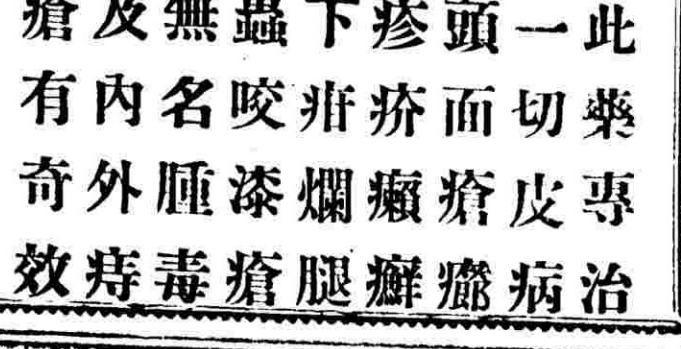 此藥專治
一切皮病
頭面瘡癤
疹疥癩癬
下疳爛腿
蟲咬漆瘡
無名腫毒
及內外痔
瘡有奇效